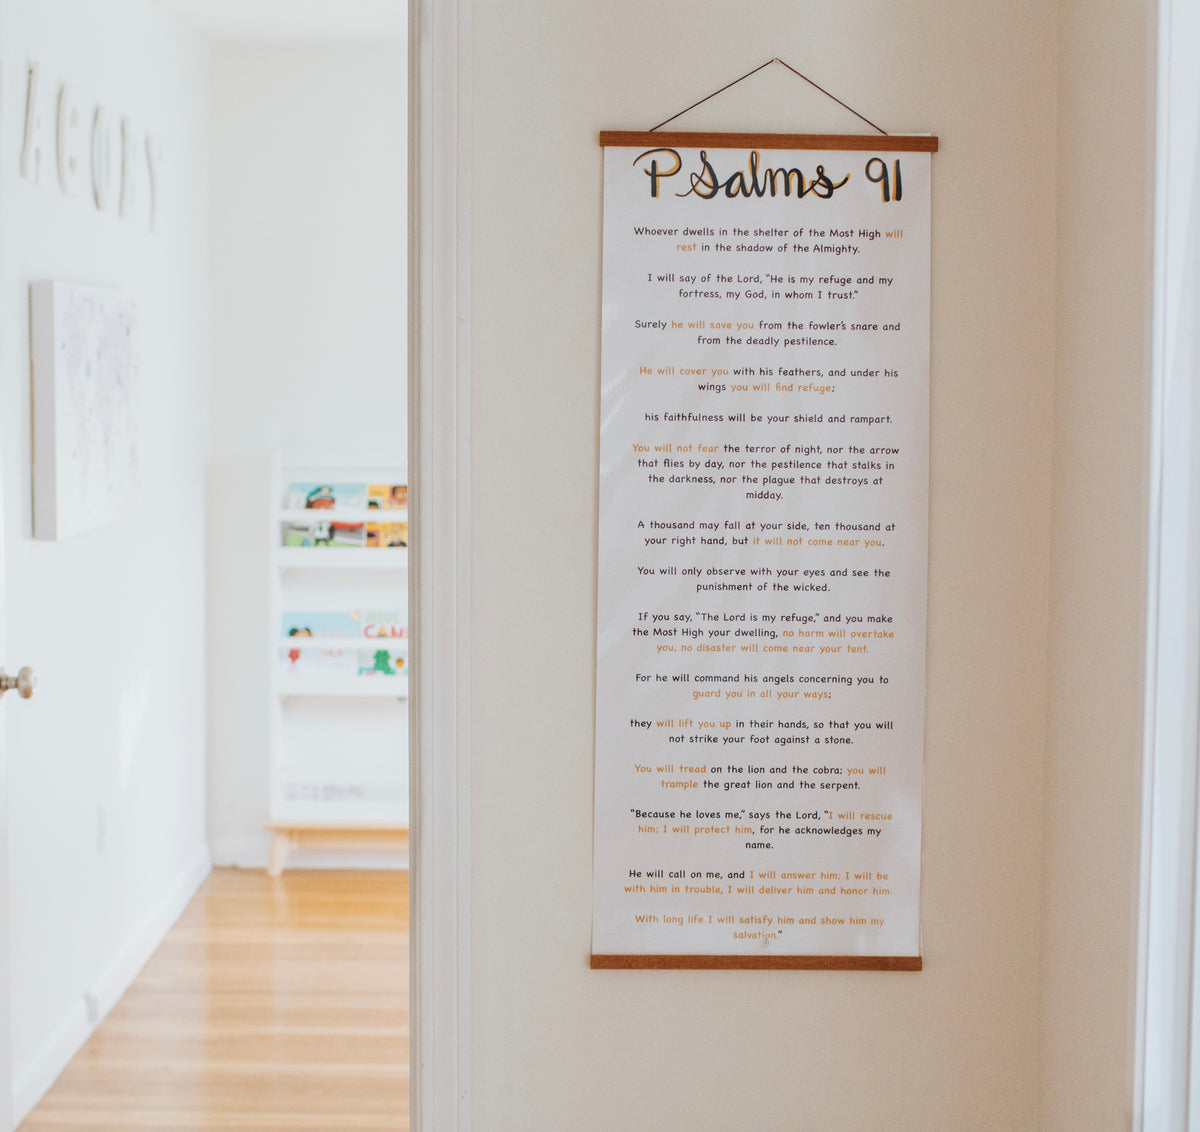 Psalms 91
Whoever dwells in the shelter of the Most High will
rest in the shadow of the Almighty.
I will say of the Lord, “He is my refuge and my
fortress, my God, in whom I trust.”
Surely he will save you from the fowler's snare and
from the deadly pestilence.
He will cover you with his feathers, and under his
wings you will find refuge;
his faithfulness will be your shield and rampart.
You will not fear the terror of night, nor the arrow
that flies by day, nor the pestilence that stalks in
the darkness, nor the plague that destroys at
midday.
A thousand may fall at your side, ten thousand at
your right hand, but it will not come near you.
You will only observe with your eyes and see the
punishment of the wicked.
If you say, “The Lord is my refuge,” and you make
the Most High your dwelling, no harm will overtake
you, no disaster will come near your tent.
For he will command his angels concerning you to
guard you in all your ways;
they will lift you up in their hands, so that you will
not strike your foot against a stone.
You will tread on the lion and the cobra; you will
trample the great lion and the serpent.
“Because he loves me,” says the Lord, “I will rescue
him; I will protect him, for he acknowledges my
name.
He will call on me, and I will answer him; I will be
with him in trouble, I will deliver him and honor him.
With long life I will satisfy him and show him my
salvation.”